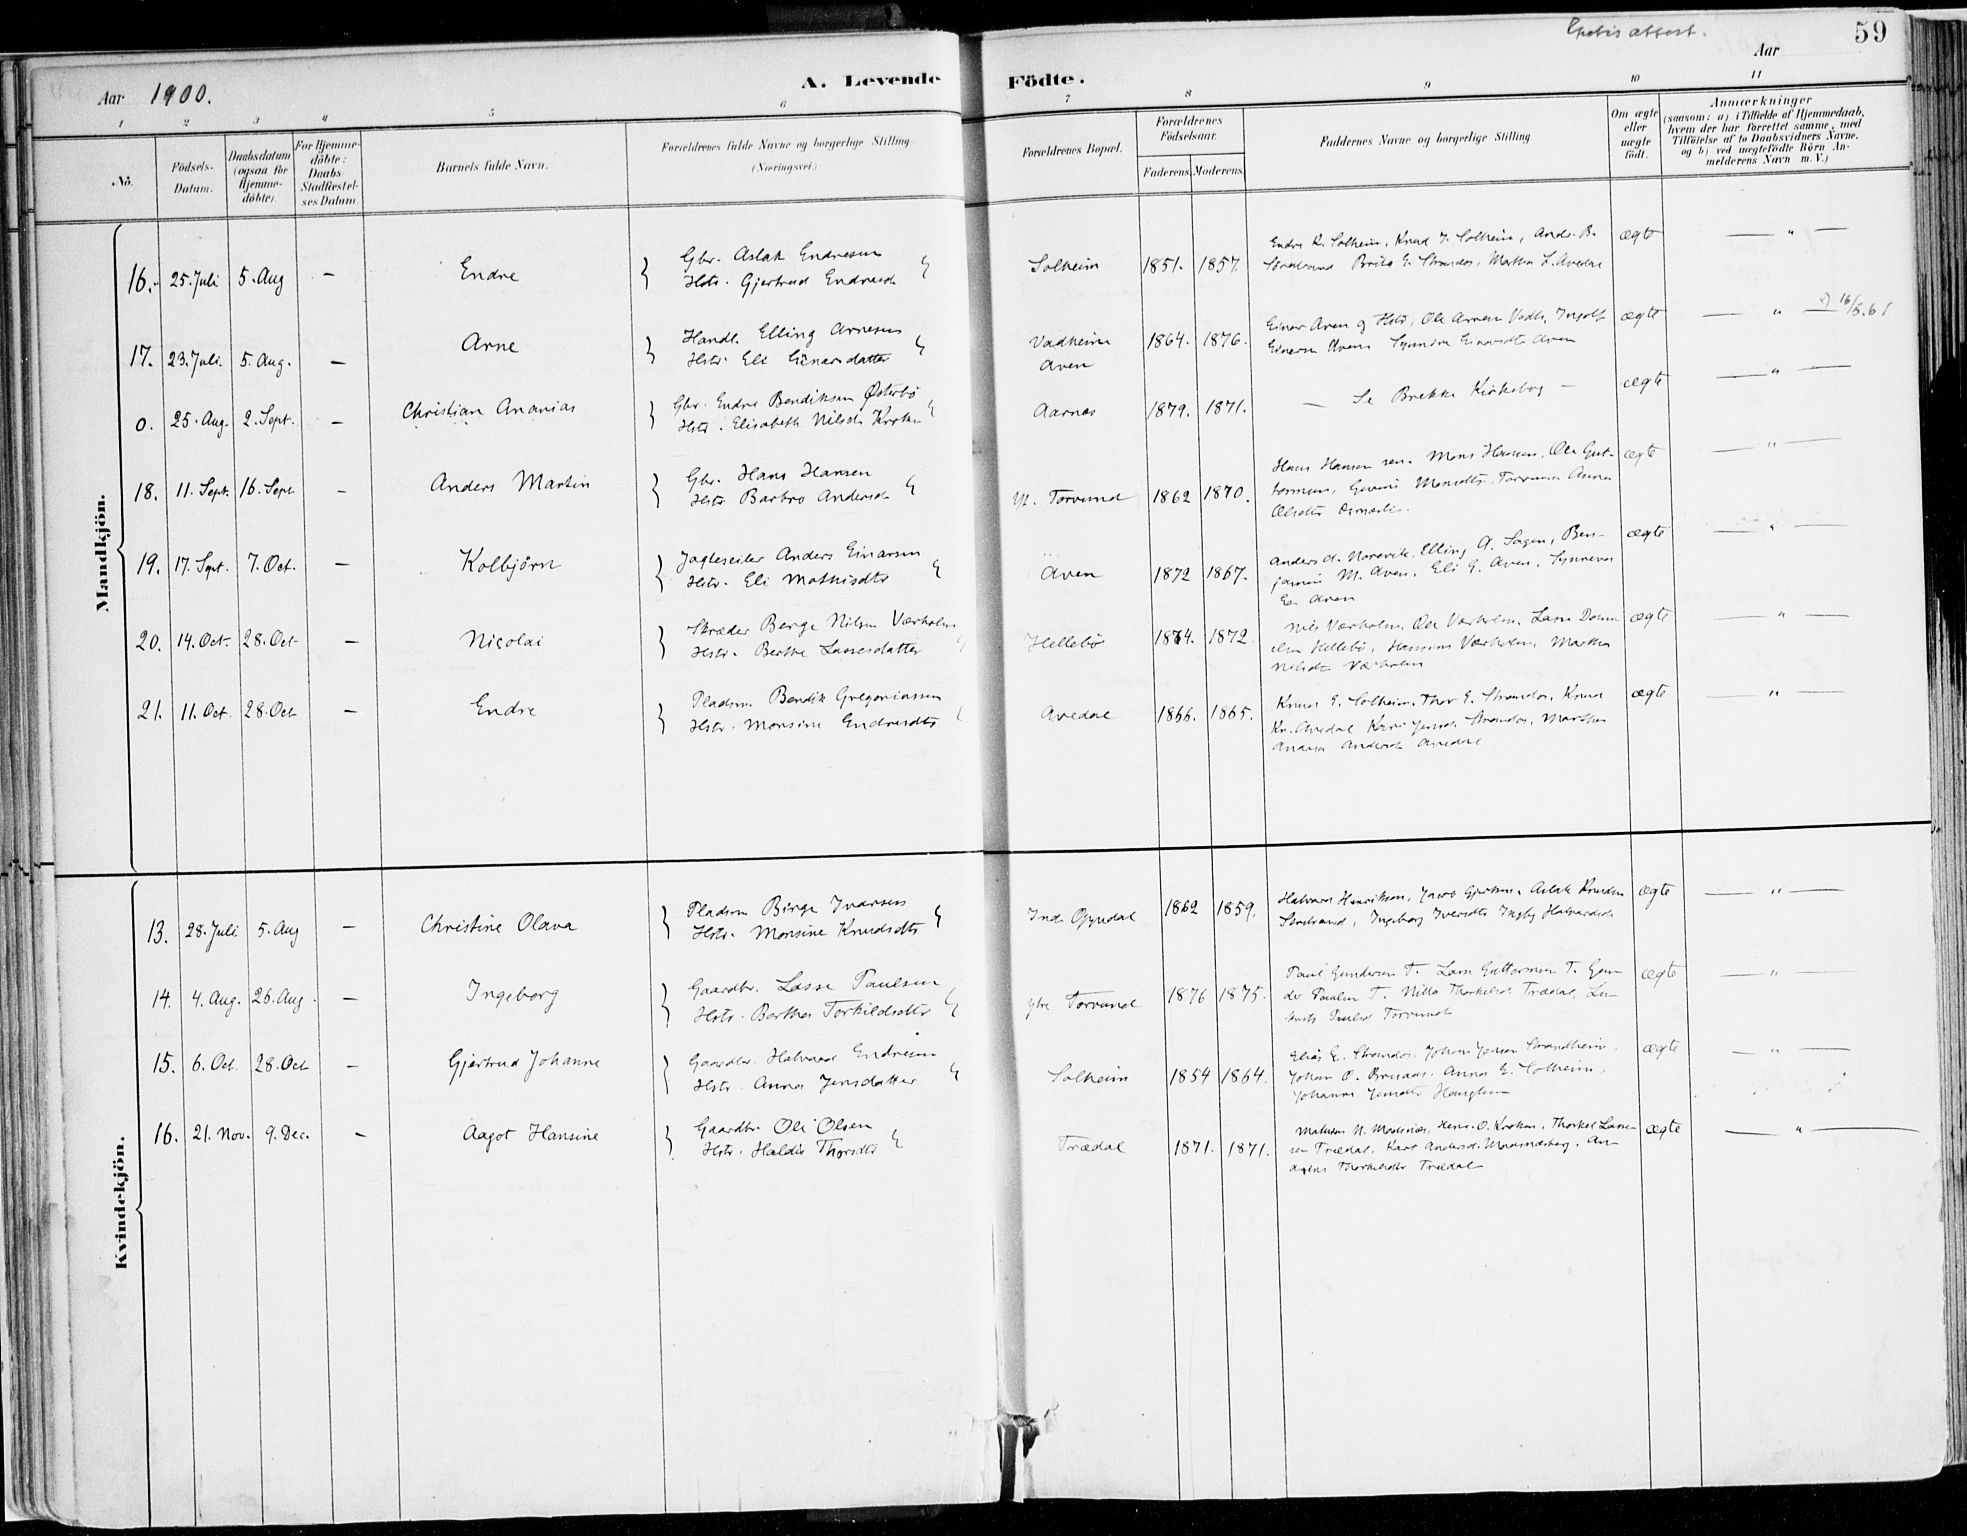 Gratis attest. 59
Aar 1900. A. Levende Födte. Aar
1 2 3 4 5 6 7 8 9 10 11
No.
Födsels-
Datum.
Daabsdatum
(ogsaa for
Hjemme-
döbte).
For Hjemme-
döbte:
Daabs-
Stadfæstel-
ses Datum.
Barnets fulde Navn.
Forældrenes fulde Navne og borgerlige Stilling
(Næringsvei.)
Forældrenes Bopæl.
Forældrenes
Födselsaar.
Faderens. Moderens.
Faddernes Navne og borgerlige Stilling
Om ægte
eller
uægte
födt.
Anmærkninger
(saasom: a) i Tilfælde af Hjemmedaab,
hvem der har forrettet samme, med
Tilföielse af to Daabsvidners Navne,
og b) ved uægtefödte Börn An-
melderens Navn m. V.)
Mandkjön.
16. 25. Juli 5. Aug — Endre
Gbr. Aslak Endresen
Hstr. Gjertrud Endresdt
Solheim 1851. 1857.
Endre K. Solheim, Knud J. Solheim, Ands. B.
Brita E. Strandos, Martha L. Avedal
ægte — " —
17. 23. Juli. 5. Aug. — Arne
Handl. Elling Arnesen
Hstr. Eli Einarsdatter
Vadheim
Aven
1864. 1876.
Einar Aven og Hstr, Ole Arnesen Vadh., Ingolf
Einarsen Aven Synneva Einarsdtr Aven
ægte — " — 16/5.61
0. 25. Aug. 2. Sept. — Christian Ananias
Gbr. Endre Bendiksen Østerbø
Hstr. Elisabeth Nilsdtr Kroken
Aarnes 1879. 1871.
— Se Brekke Kirkebog —
ægte — " —
18. 11. Sept. 16. Sept — Anders Martin
Gbr. Hans Hansen
Hstr Barbro Andersdt
Yt. Torvund 1862 1870.
Hans Hansen sen. Mons Hansen, Ole Gut-
tormsen, Monsdtr. Torvund Anna
Olsdtr
ægte — " —
19. 17. Sept. 7. Oct. — Kolbjörn
Jagteseiler Anders Einarsen
Hstr. Eli Mathisdtr
Aven 1872 1867.
Anders A. Norevik, Elling A. Sagen, Ben-
jamin M. Aven, Eli G. Aven, Synneva
E. Aven
ægte — " —
20. 14. Oct. 28. Oct — Nicolai
Skræder Berge Nilsen Værholm
Hstr. Berthe Lassesdatter
Hellebö 1874. 1872.
Nils Værholm, Ole Værholm, Lasse Dani-
elsen Hellebö, Hansine Værholm, Martha
Nilsdtr Værholm
ægte — " —
21. 11. Oct. 28. Oct — Endre
Pladsm. Bendik Gregoriussen
Hstr. Monsine Endresdtr
Avedal 1866. 1865.
Knud E. Solheim, Thor E. Strandos, Knud
Kr. Avedal Kari Jensd. Strandos, Martha
Andrea Andersdt Avedal
ægte — " —
Kvindekjön.
13. 28. Juli 5. Aug — Christine Olava
Pladsm Birge Ivarsen
Hstr. Monsine Knudsdtr
Indr. Oppedal 1862 1859.
Halvard Henriksen, Jacob Gjertsen, Aslak Knudsen
Ingeborg Iversdtr Ingbj Halvardsdt
ægte — " —
14. 4. Aug. 26. Aug. — Ingeborg
Gaardbr. Lasse Paulsen
Hstr. Berthe Torkildsdtr
Ytre Torvund 1876 1875.
Paul Gundersen T. Lasse Guttormsen T. Gun-
der Paulsen T. Nille Thorkelsdt Trædal,
Paulsd Torvund
ægte — " —
15. 6. Oct. 28. Oct — Gjertrud Johanne
Gaardbr. Halvard Endresen
Hstr. Anna Jensdatter
Solheim 1854 1864.
Elias E. Strandos, Johan Jensen Strandheim,
Johan O. Anna E. Solheim,
Johanne Jensdtr
ægte — " —
16. 21. Nov. 9. Dec. — Aagot Hansine
Gaardbr. Ole Olsen
Hstr. Haldis Thorsdtr
Trædal 1871. 1871.
Mathias N. O. Kroken, Thorkel Lasse-
sen Trædal, Kari Andersd. An-
Thorkelsdtr Trædal
ægte — " —